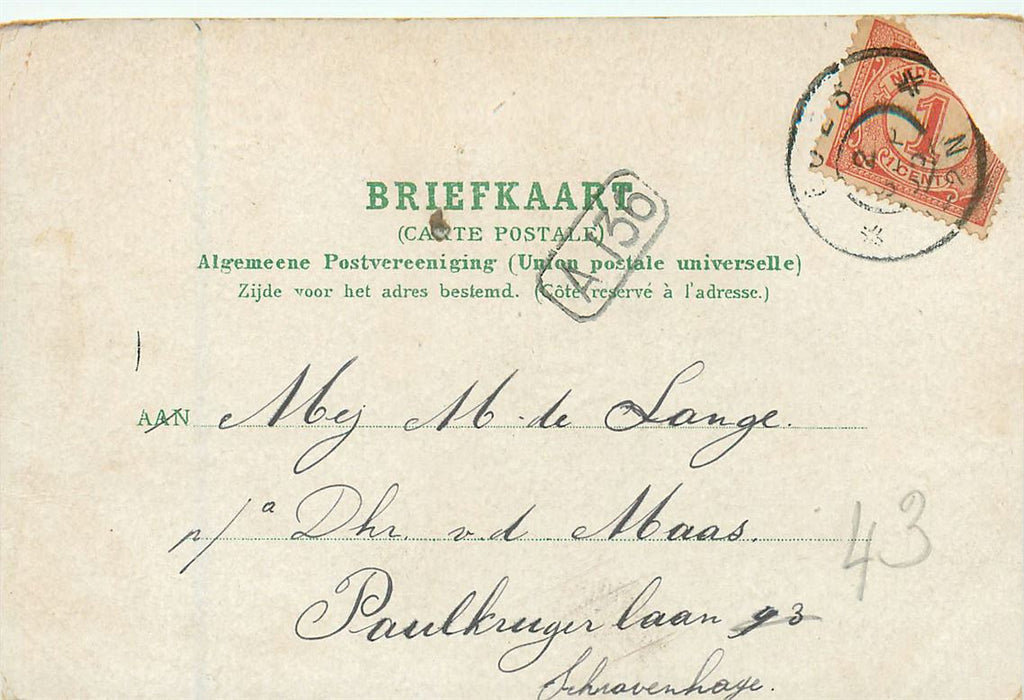 NEDER
1
CENT
GOES
A 136
BRIEFKAART
(CARTE POSTALE)
Algemeene Postvereeniging (Union postale universelle)
Zijde voor het adres bestemd. (Côté reservé à l'adresse.)
AAN Mej M. de Lange.
p/a Dhr. v. d. Maas.
43
Paulkruger laan 93
Schravenhage.